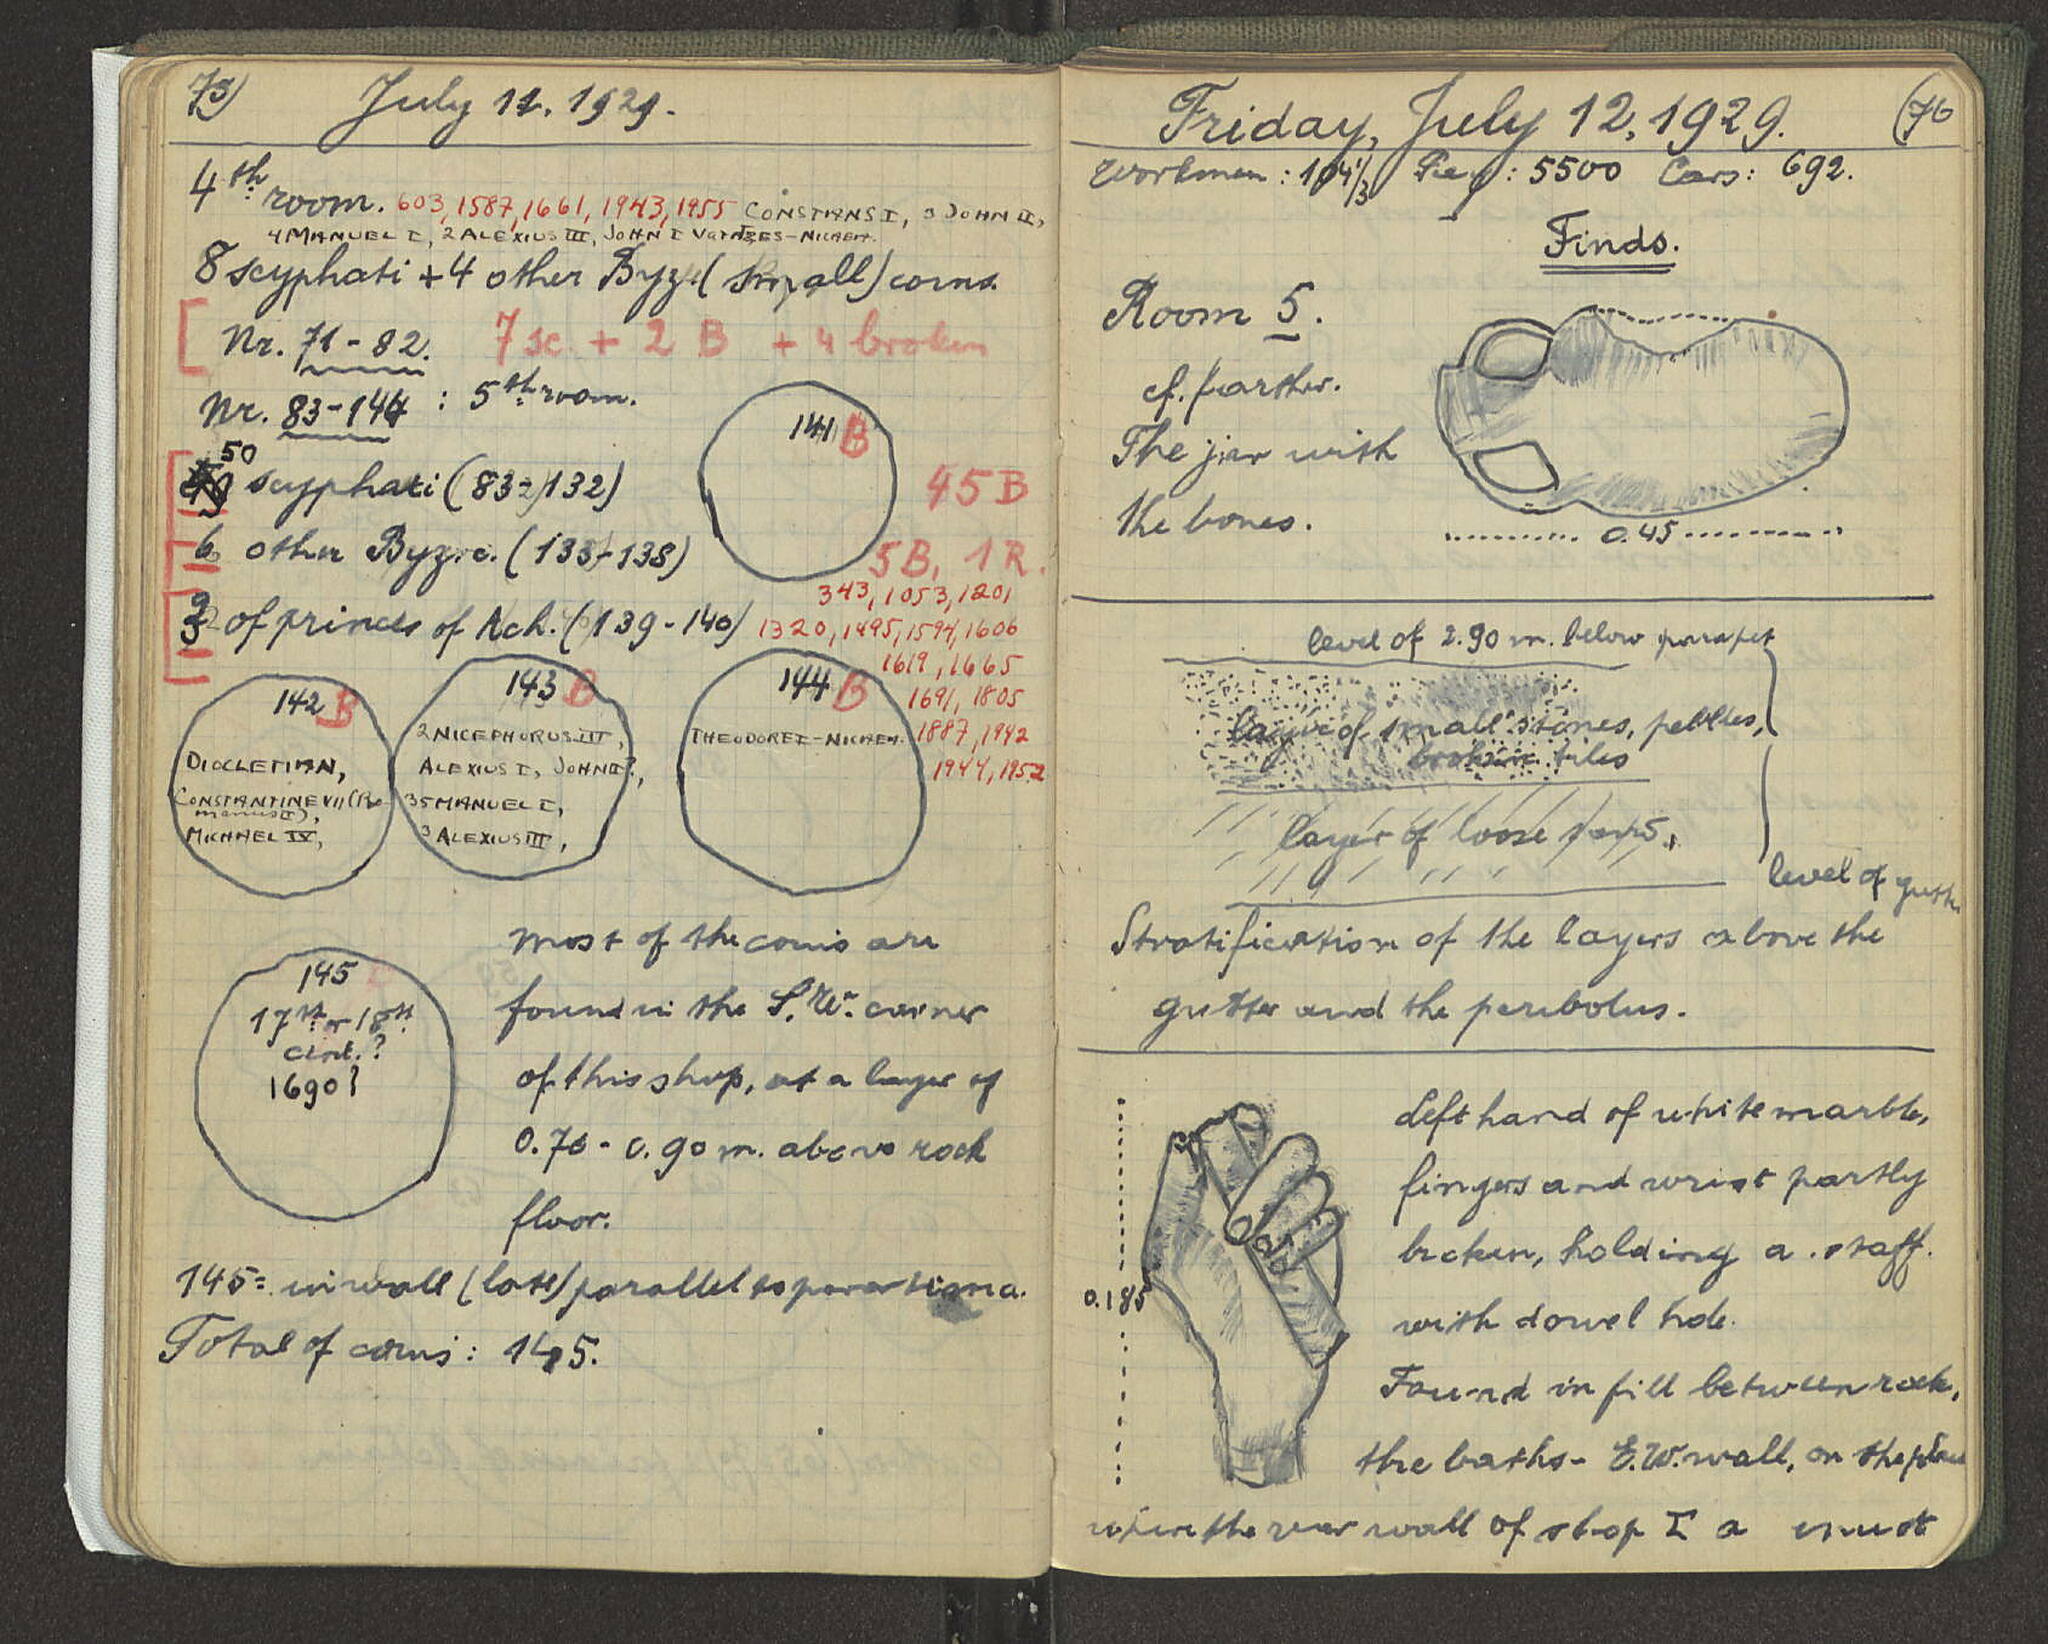 75)
July 11. 1929.
4th room. 603, 1587, 1661, 1943, 1955 CONSTANS I, 3 JOHN II,
4 MANUEL I, 2 ALEXIUS III, JOHN I VATATZES-NICAEA.
8 scyphati + 4 other Byz. (small) coins.
Nr. 71-82. 7 sc. + 2 B + 4 broken
Nr. 83-144 : 5th room.
141 B
50 scyphati (83-132) 45 B
6 other Byz. (133-138) 5B, 1R.
343, 1053, 1201
2 of princes of Ach. (139-140) 1320, 1495, 1594, 1606
1619, 1665
1691, 1805
1887, 1942
1944, 1952
142 B
DIOCLETIAN,
CONSTANTINE VII (Romanus II),
MICHAEL IV,
143 B
2 NICEPHORUS III,
ALEXIUS I, JOHN II,
35 MANUEL I,
3 ALEXIUS III,
144 B
THEODORE I - NICAEA.
145
17th or 18th
cent.?
1690?
most of the coins are
found in the S.W. corner
of this shop, at a layer of
0.70 - 0.90 m. above rock
floor.
145 = in wall (late) parallel to parartema.
Total of coins: 145.
Friday, July 12, 1929. (76
Workmen: 104 1/3 Pay: 5500 Cars: 692.
Finds.
Room 5.
cf. farther.
The jar with
the bones.
0.45
level of 2.90 m. below parapet
layer of small stones, pebbles,
broken tiles
layer of loose
level of gutter
Stratification of the layers above the
gutter and the peribolus.
0.185
Left hand of white marble,
fingers and wrist partly
broken, holding a staff.
with dowel hole.
Found in fill between rock,
the baths - E.W. wall, on the place
where the rear wall of shop I a must